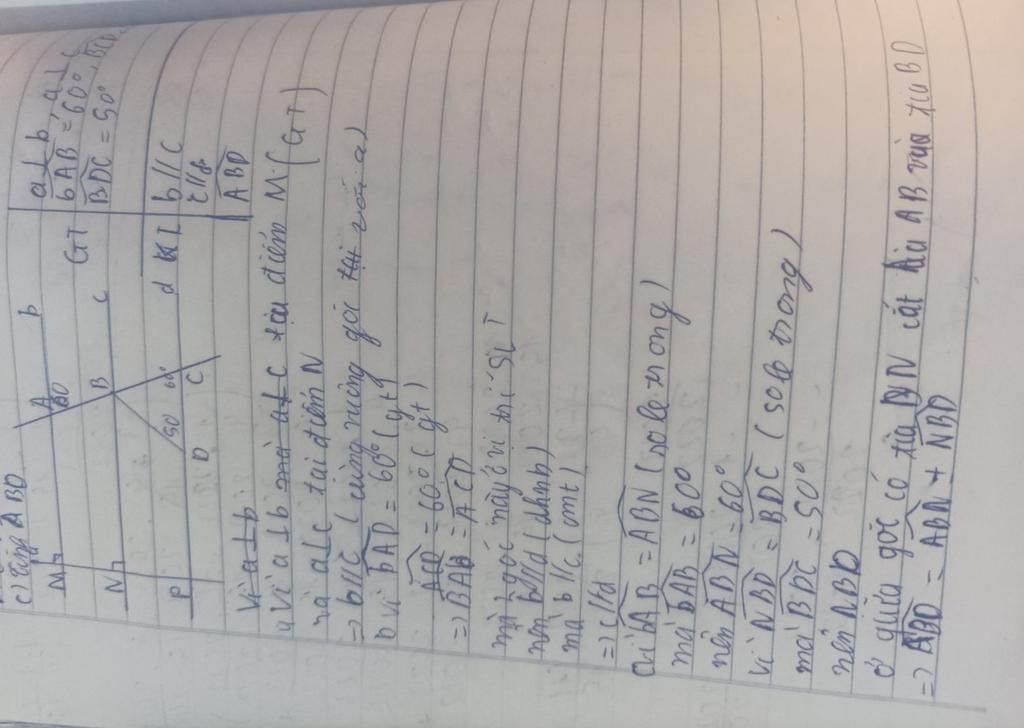 c) Tính ABD
M A b
60
N B c
P 50 60° d
D C
GT a⊥b, a⊥c
bAB = 60°, BCD
BDC = 50°
KL b//c
c//d
ABD
Vì a⊥b
a Vì a⊥b mà a⊥c tại điểm M (GT)
mà a⊥c tại điểm N
=> b//c (cùng vuông góc với a)
b Vì bAD = 60° (gt)
ACD = 60° (gt)
=> BAb = ACD
mà 2 góc này ở vị trí SLT
nên b//d (dhnb)
mà b//c (cmt)
=> c//d
c) Vì bAB = ABN (so le trong)
mà bAB = 60°
nên ABN = 60°
Vì NBD = BDC (so le trong)
mà BDC = 50°
nên NBD
ở giữa góc có tia BN cắt tia AB và tia BD
=> ABD = ABN + NBD